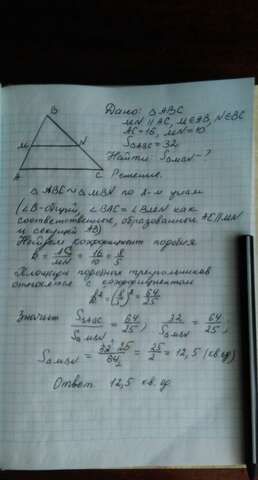 B
Дано: △ABC
MN ∥ AC, M∈AB, N∈BC
AC=16, MN=10
S△ABC=32
Найти: S△MBN-?
M N
A C
Решение.
△ABC ~ △MBN по 2-м углам
(∠B-общий, ∠BAC = ∠BMN как
соответственные, образованные AC∥MN
и секущей AB)
Найдем коэффициент подобия
k = AC/MN = 16/10 = 8/5
Площади подобных треугольников
относятся с коэффициентом
k² = (8/5)² = 64/25
Значит S△ABC/S△MBN = 64/25; 32/S△MBN = 64/25;
S△MBN = 32·25/64 = 25/2 = 12,5 (кв.ед)
Ответ 12,5 кв.ед.